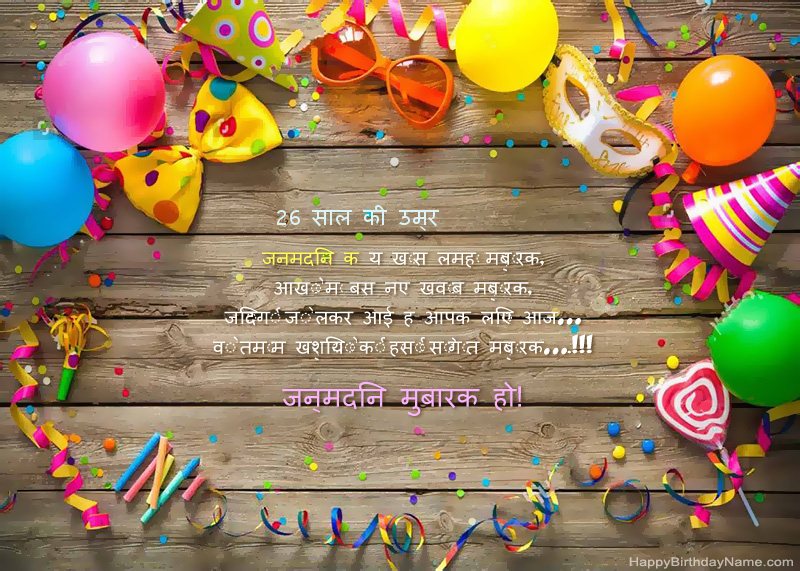 26 साल की उम्र
जनमदनि क य ख़ास लमहा मबारक,
आखो म बस नए खवाब मबारक,
जदिगी जो लकर आई ह आपक लएि आज...
वो तमाम खशयिो की हसी सौगात मबारक...!!!
जन्मदनि मुबारक हो!
HappyBirthdayName.com